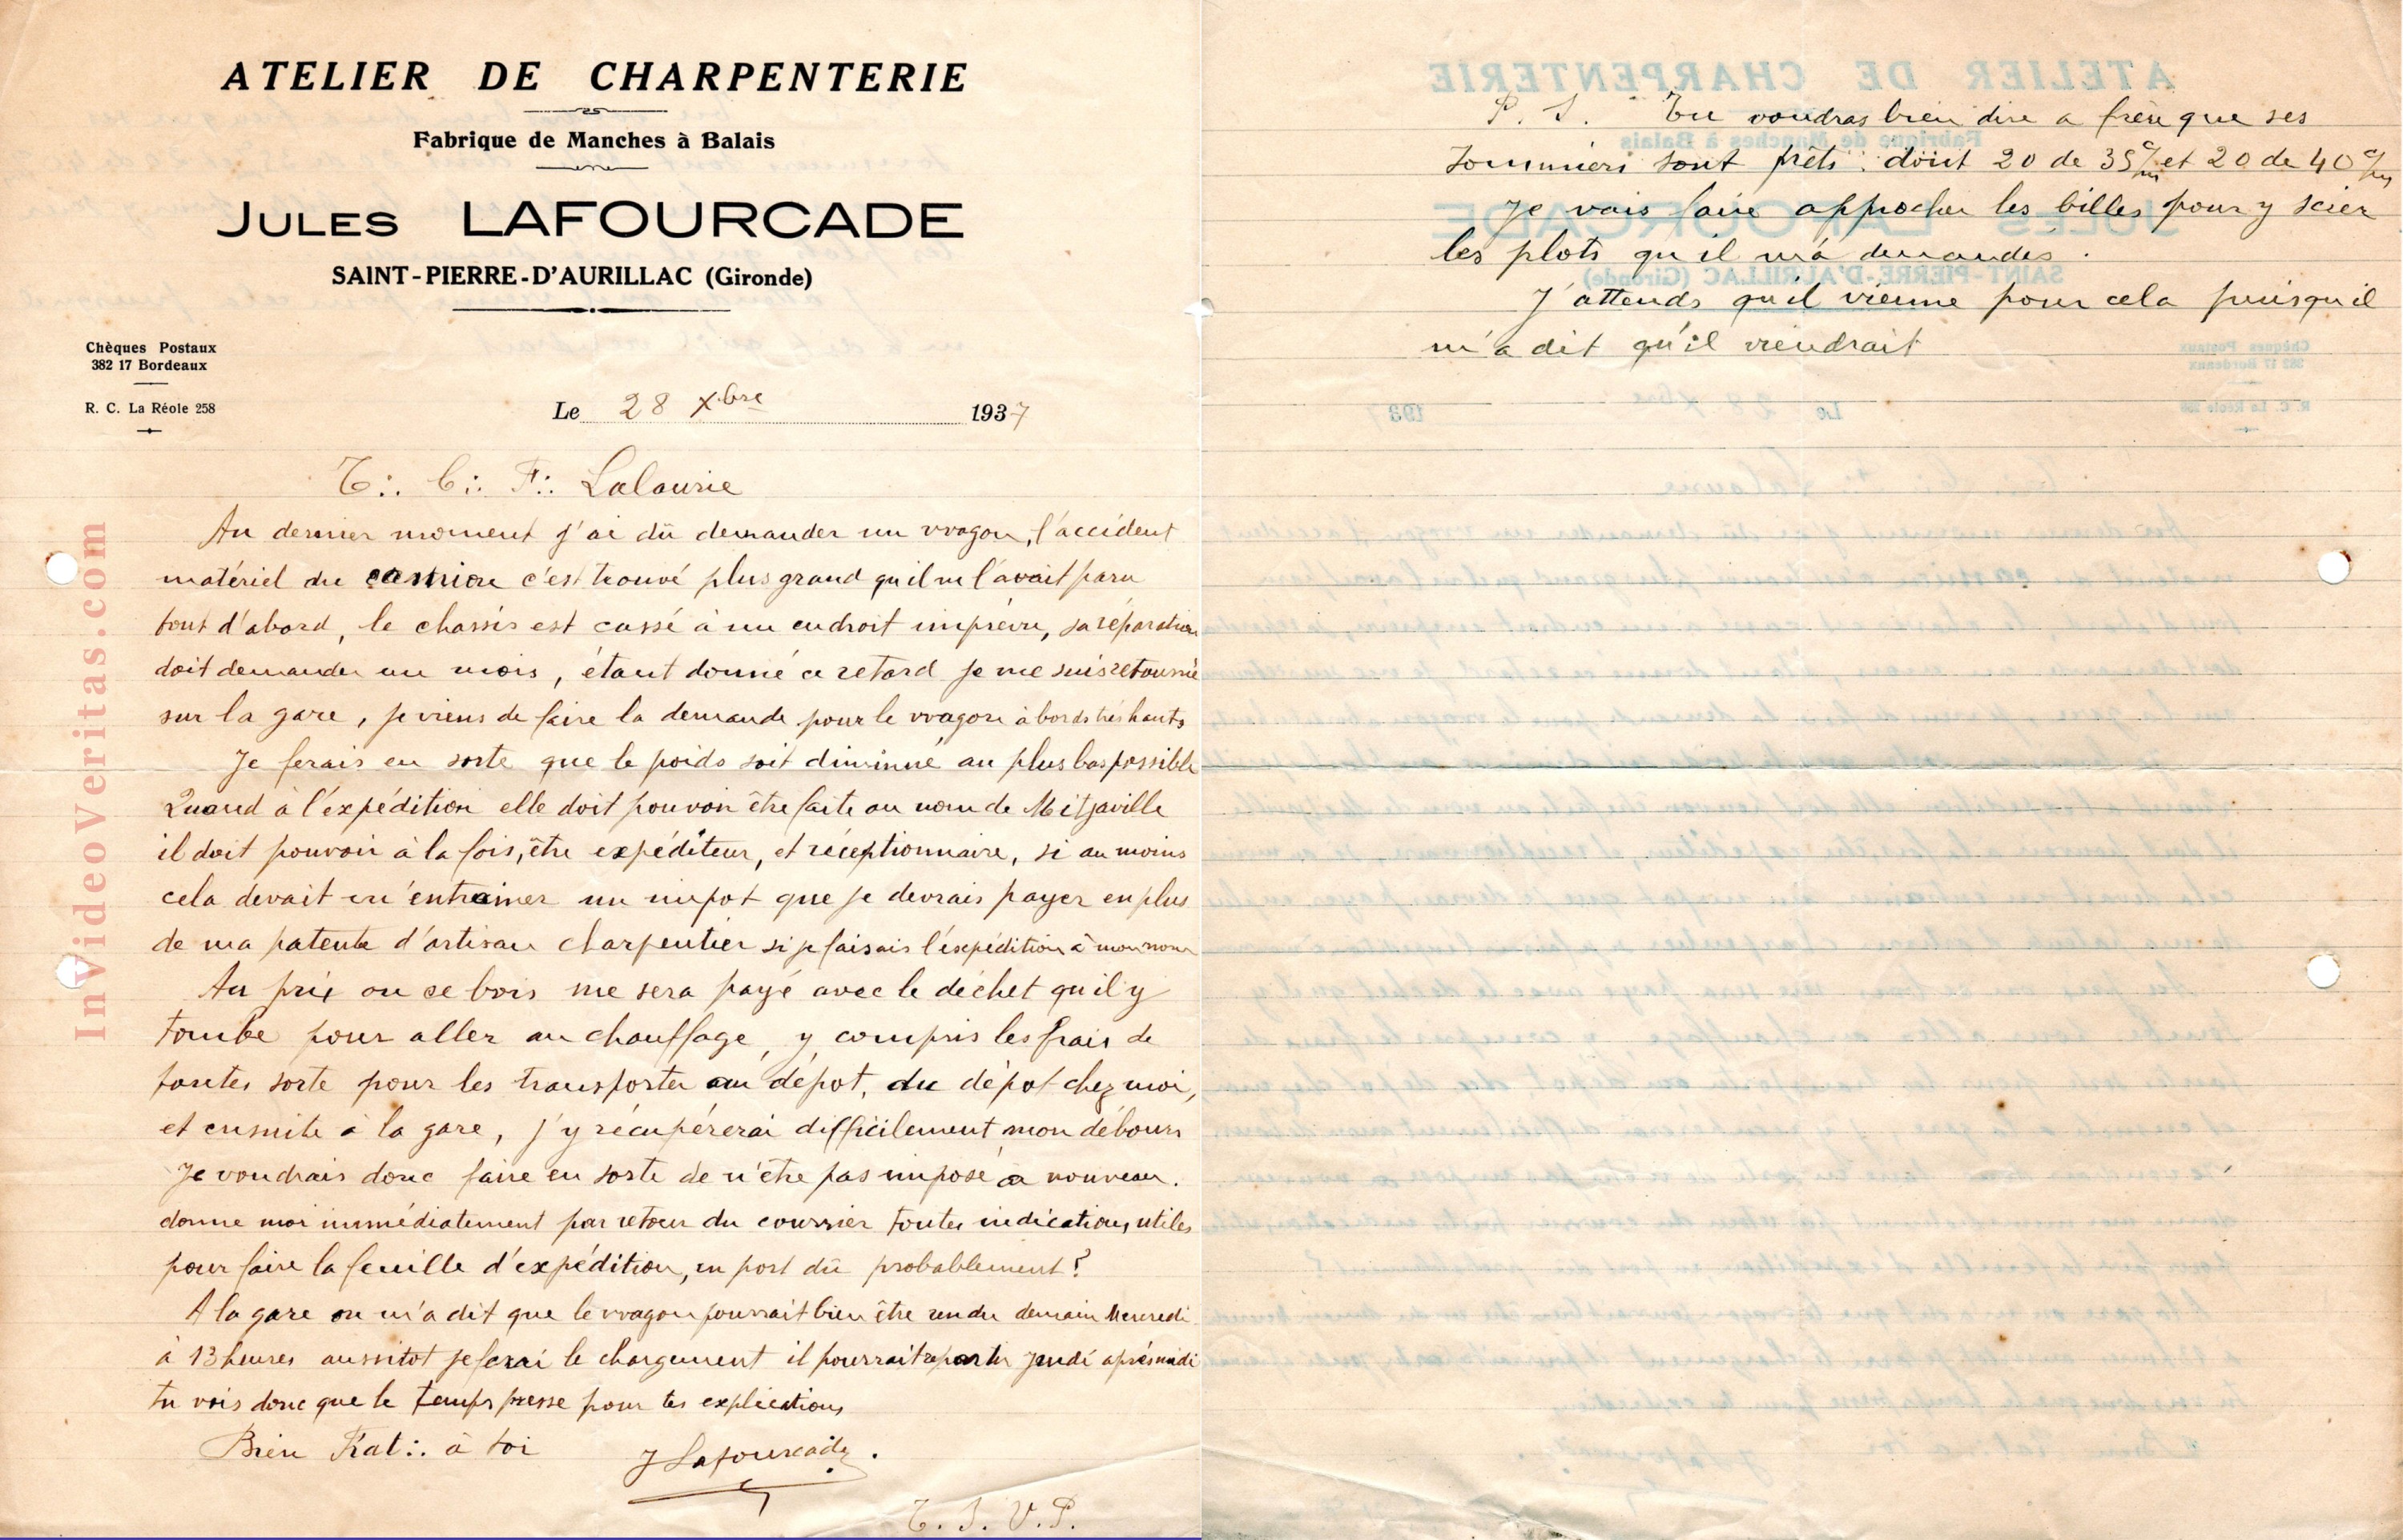 ATELIER DE CHARPENTERIE
Fabrique de Manches à Balais
JULES LAFOURCADE
SAINT-PIERRE-D'AURILLAC (Gironde)
Chèques Postaux
382 17 Bordeaux
R. C. La Réole 258
Le 28 Xbre 1937
T∴ C∴ F∴ Lalaurie
Au dernier moment j'ai dû demander un wagon, l'accident
matériel du camion c'est trouvé plus grand qu'il ne l'avait paru
tout d'abord, le chassis est cassé à un endroit imprévu, sa réparation
doit demander un mois, étant donné ce retard je me suis retourné
sur la gare, je viens de faire la demande pour le wagon à bords très hauts
Je ferais en sorte que le poids soit diminué au plus bas possible
Quand à l'expédition elle doit pouvoir être faite au nom de Mitjaville
il doit pouvoir à la fois, être expéditeur, et réceptionnaire, si au moins
cela devait m'entrainer un impot que je devrais payer en plus
de ma patente d'artisan charpentier si je faisais l'expédition à mon nom
Au prix ou ce bois me sera payé avec le déchet qu'il y
tombe pour aller au chauffage, y compris les frais de
toutes sorte pour les transporter au dépot, du dépot chez moi,
et ensuite à la gare, j'y récupérerai difficilement mon débours
Je voudrais donc faire en sorte de n'être pas imposé a nouveau.
donne moi immédiatement par retour du courrier toutes indications utiles
pour faire la feuille d'expédition, en port dû probablement?
A la gare on m'a dit que le wagon pourrait bien être rendu demain Mercredi
à 13 heures aussitot je ferai le chargement il pourrait repartir jeudi après midi
tu vois donc que le temps presse pour tes explications
Bien Frat∴ à toi J Lafourcade.
T. S. V. P.
P. S. Tu voudras bien dire a frère que ses
sommiers sont prêts: doint 20 de 35 c/m et 20 de 40 c/m
Je vais faire approcher les billes pour y scier
les plots qu'il m'a demandés.
J'attends qu'il vienne pour cela puisqu'il
m'a dit qu'il viendrait
InVideoVeritas.com